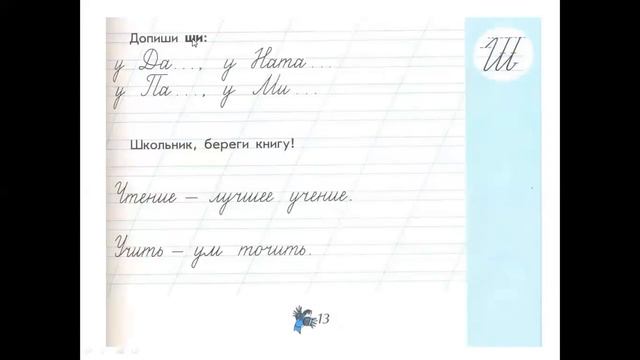 Допиши ши:
у Да..., у Ната...
у Па..., у Ми...
Школьник, береги книгу!
Чтение – лучшее учение.
Учить – ум точить.
13
Ш